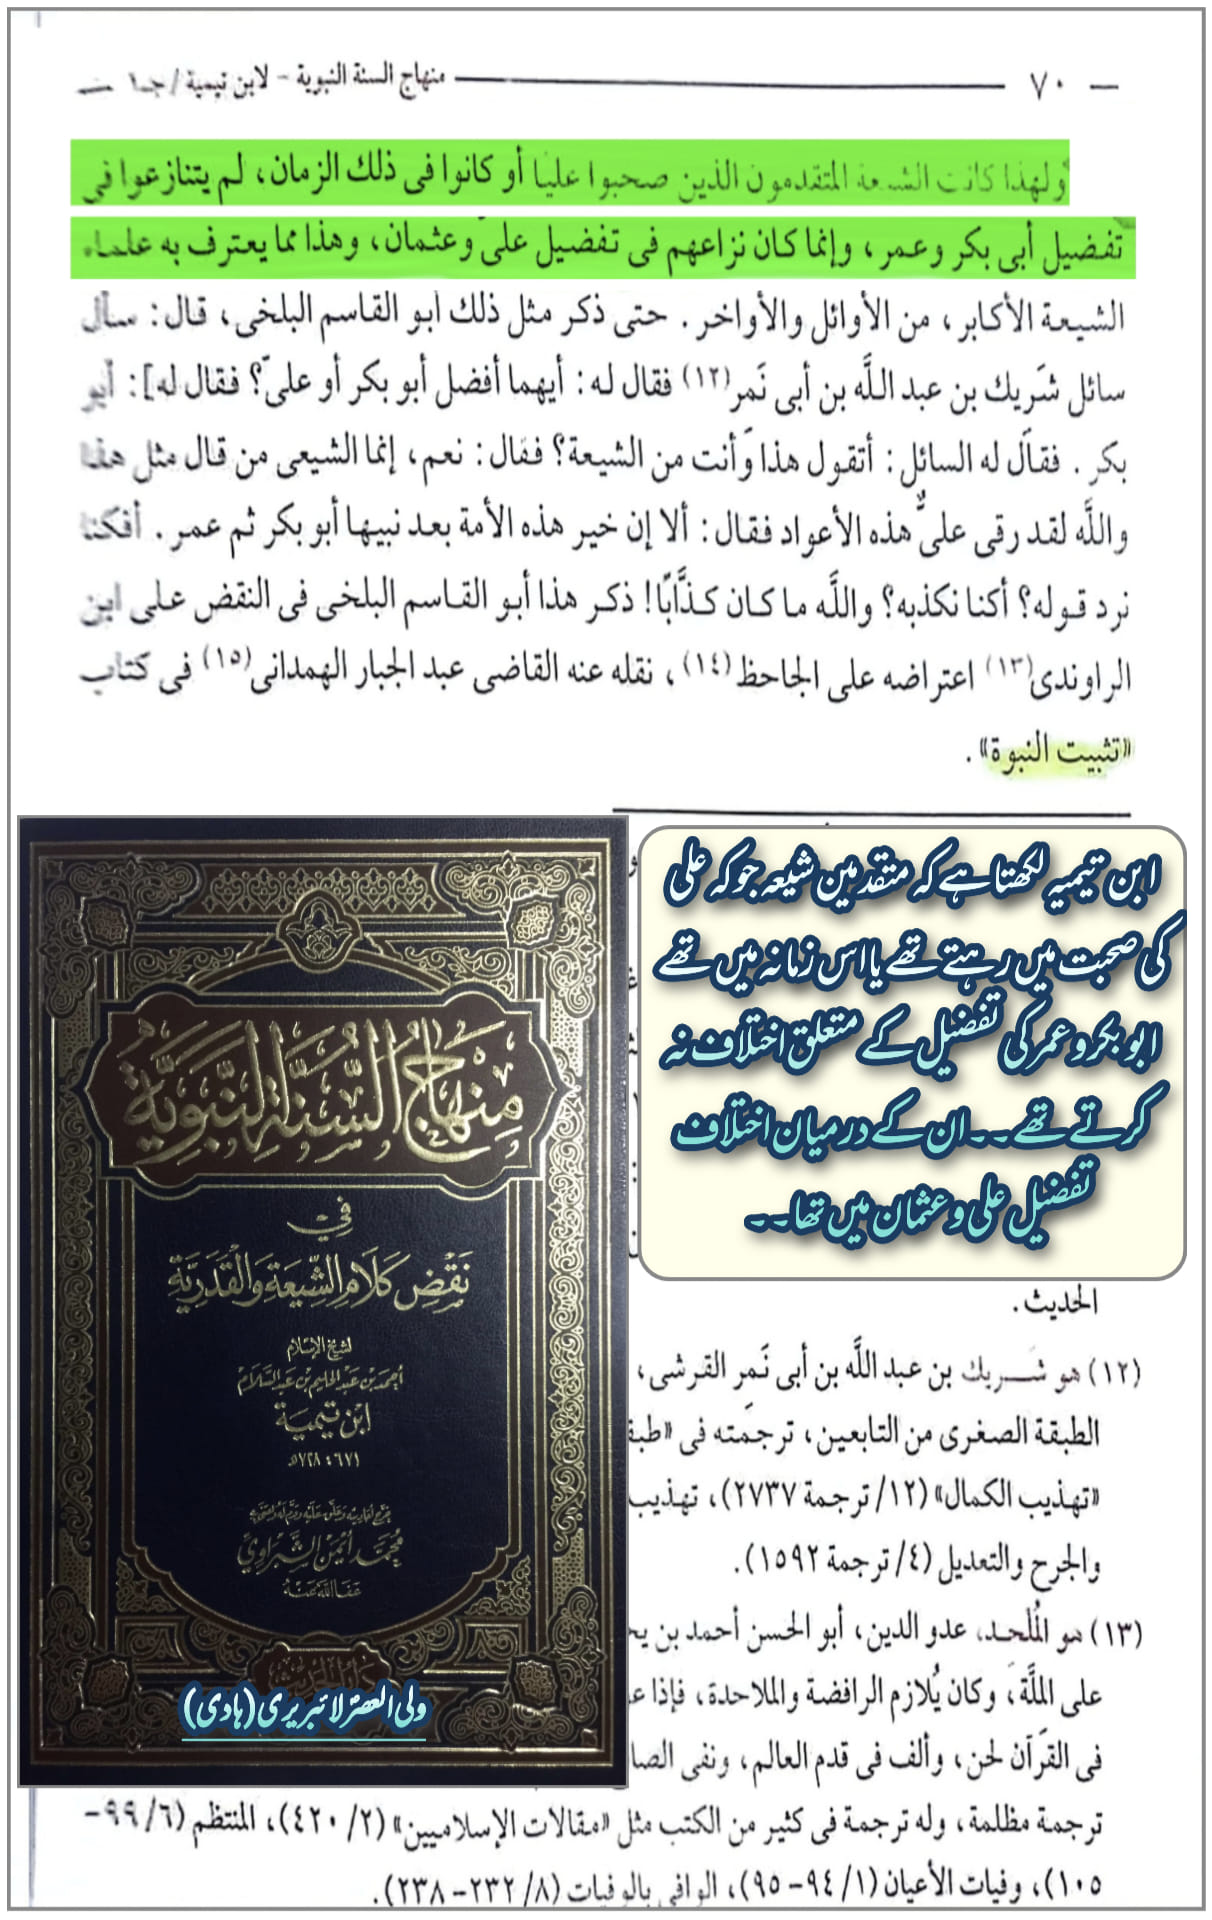 — ٧٠ منهاج السنة النبوية - لابن تيمية / جـ١ —
ولهذا كانت الشيعة المتقدمون الذين صحبوا عليا أو كانوا فى ذلك الزمان، لم يتنازعوا في
تفضيل أبى بكر وعمر، وإنما كان نزاعهم فى تفضيل علىّ وعثمان، وهذا مما يعترف به علماء
الشيعة الأكابر، من الأوائل والأواخر. حتى ذكر مثل ذلك أبو القاسم البلخى، قال: سأل
سائل شَريك بن عبد اللَّه بن أبى نَمر(١٢) فقال له: أيهما أفضل أبو بكر أو علىّ؟ فقال له]: أبو
بكر. فقال له السائل: أتقول هذا وَأنت من الشيعة؟ فقال: نعم، إنما الشيعى من قال مثل هذا
واللَّه لقد رقى علىٌّ هذه الأعواد فقال: ألا إن خير هذه الأمة بعد نبيها أبو بكر ثم عمر. أفكنا
نرد قوله؟ أكنا نكذبه؟ واللَّه ما كان كذَّابًا! ذكر هذا أبو القاسم البلخى فى النقض على ابن
الراوندى(١٣) اعتراضه على الجاحظ(١٤)، نقله عنه القاضى عبد الجبار الهمدانى(١٥) فى كتاب
«تثبيت النبوة».
ابن تیمیہ لکھتا ہے کہ متقدمین شیعہ جو کہ علی
کی صحبت میں رہتے تھے یا اس زمانہ میں تھے
ابو بکر و عمر کی تفضیل کے متعلق اختلاف نہ
کرتے تھے۔۔ ان کے درمیان اختلاف
تفضیل علی و عثمان میں تھا۔۔
منهاج السُّنَّة النَّبَوِيَّة
في
نَقْضِ كَلَامِ الشِّيعَةِ وَالْقَدَرِيَّةِ
لشيخ الإسلام
أحمد بن عبد الحليم بن عبد السلام
ابن تيمية
٦٦١ : ٧٢٨هـ
خرج أحاديثه وعلق عليه وقدم له
مُحَمَّد أيْمَن الشَّبْرَاوِيّ
عَفَا اللَّه عَنْهُ
ولی العصر لائبریری (ہادی)
الحديث.
(١٢) هو شَريك بن عبد اللَّه بن أبى نَمِر القرشى،
الطبقة الصغرى من التابعين، ترجمته فى «طبقـ
«تهذيب الكمال» (١٢/ ترجمة ٢٧٣٧)، تهذيب
والجرح والتعديل (٤/ ترجمة ١٥٩٢).
(١٣) هو المُلْحد، عدو الدين، أبو الحسن أحمد بن يحـ
على الملَّة، وكان يُلازم الرافضة والملاحدة، فإذا عـ
فى القرآن لحن، وألف فى قدم العالم، ونفى الصا
ترجمة مظلمة، وله ترجمة فى كثير من الكتب مثل «مقالات الإسلاميين» (٢/ ٤٢٠)، المنتظم (٦/ ٩٩-
١٠٥)، وفيات الأعيان (١/ ٩٤-٩٥)، الوافي بالوفيات (٨/ ٢٣٢-٢٣٨).